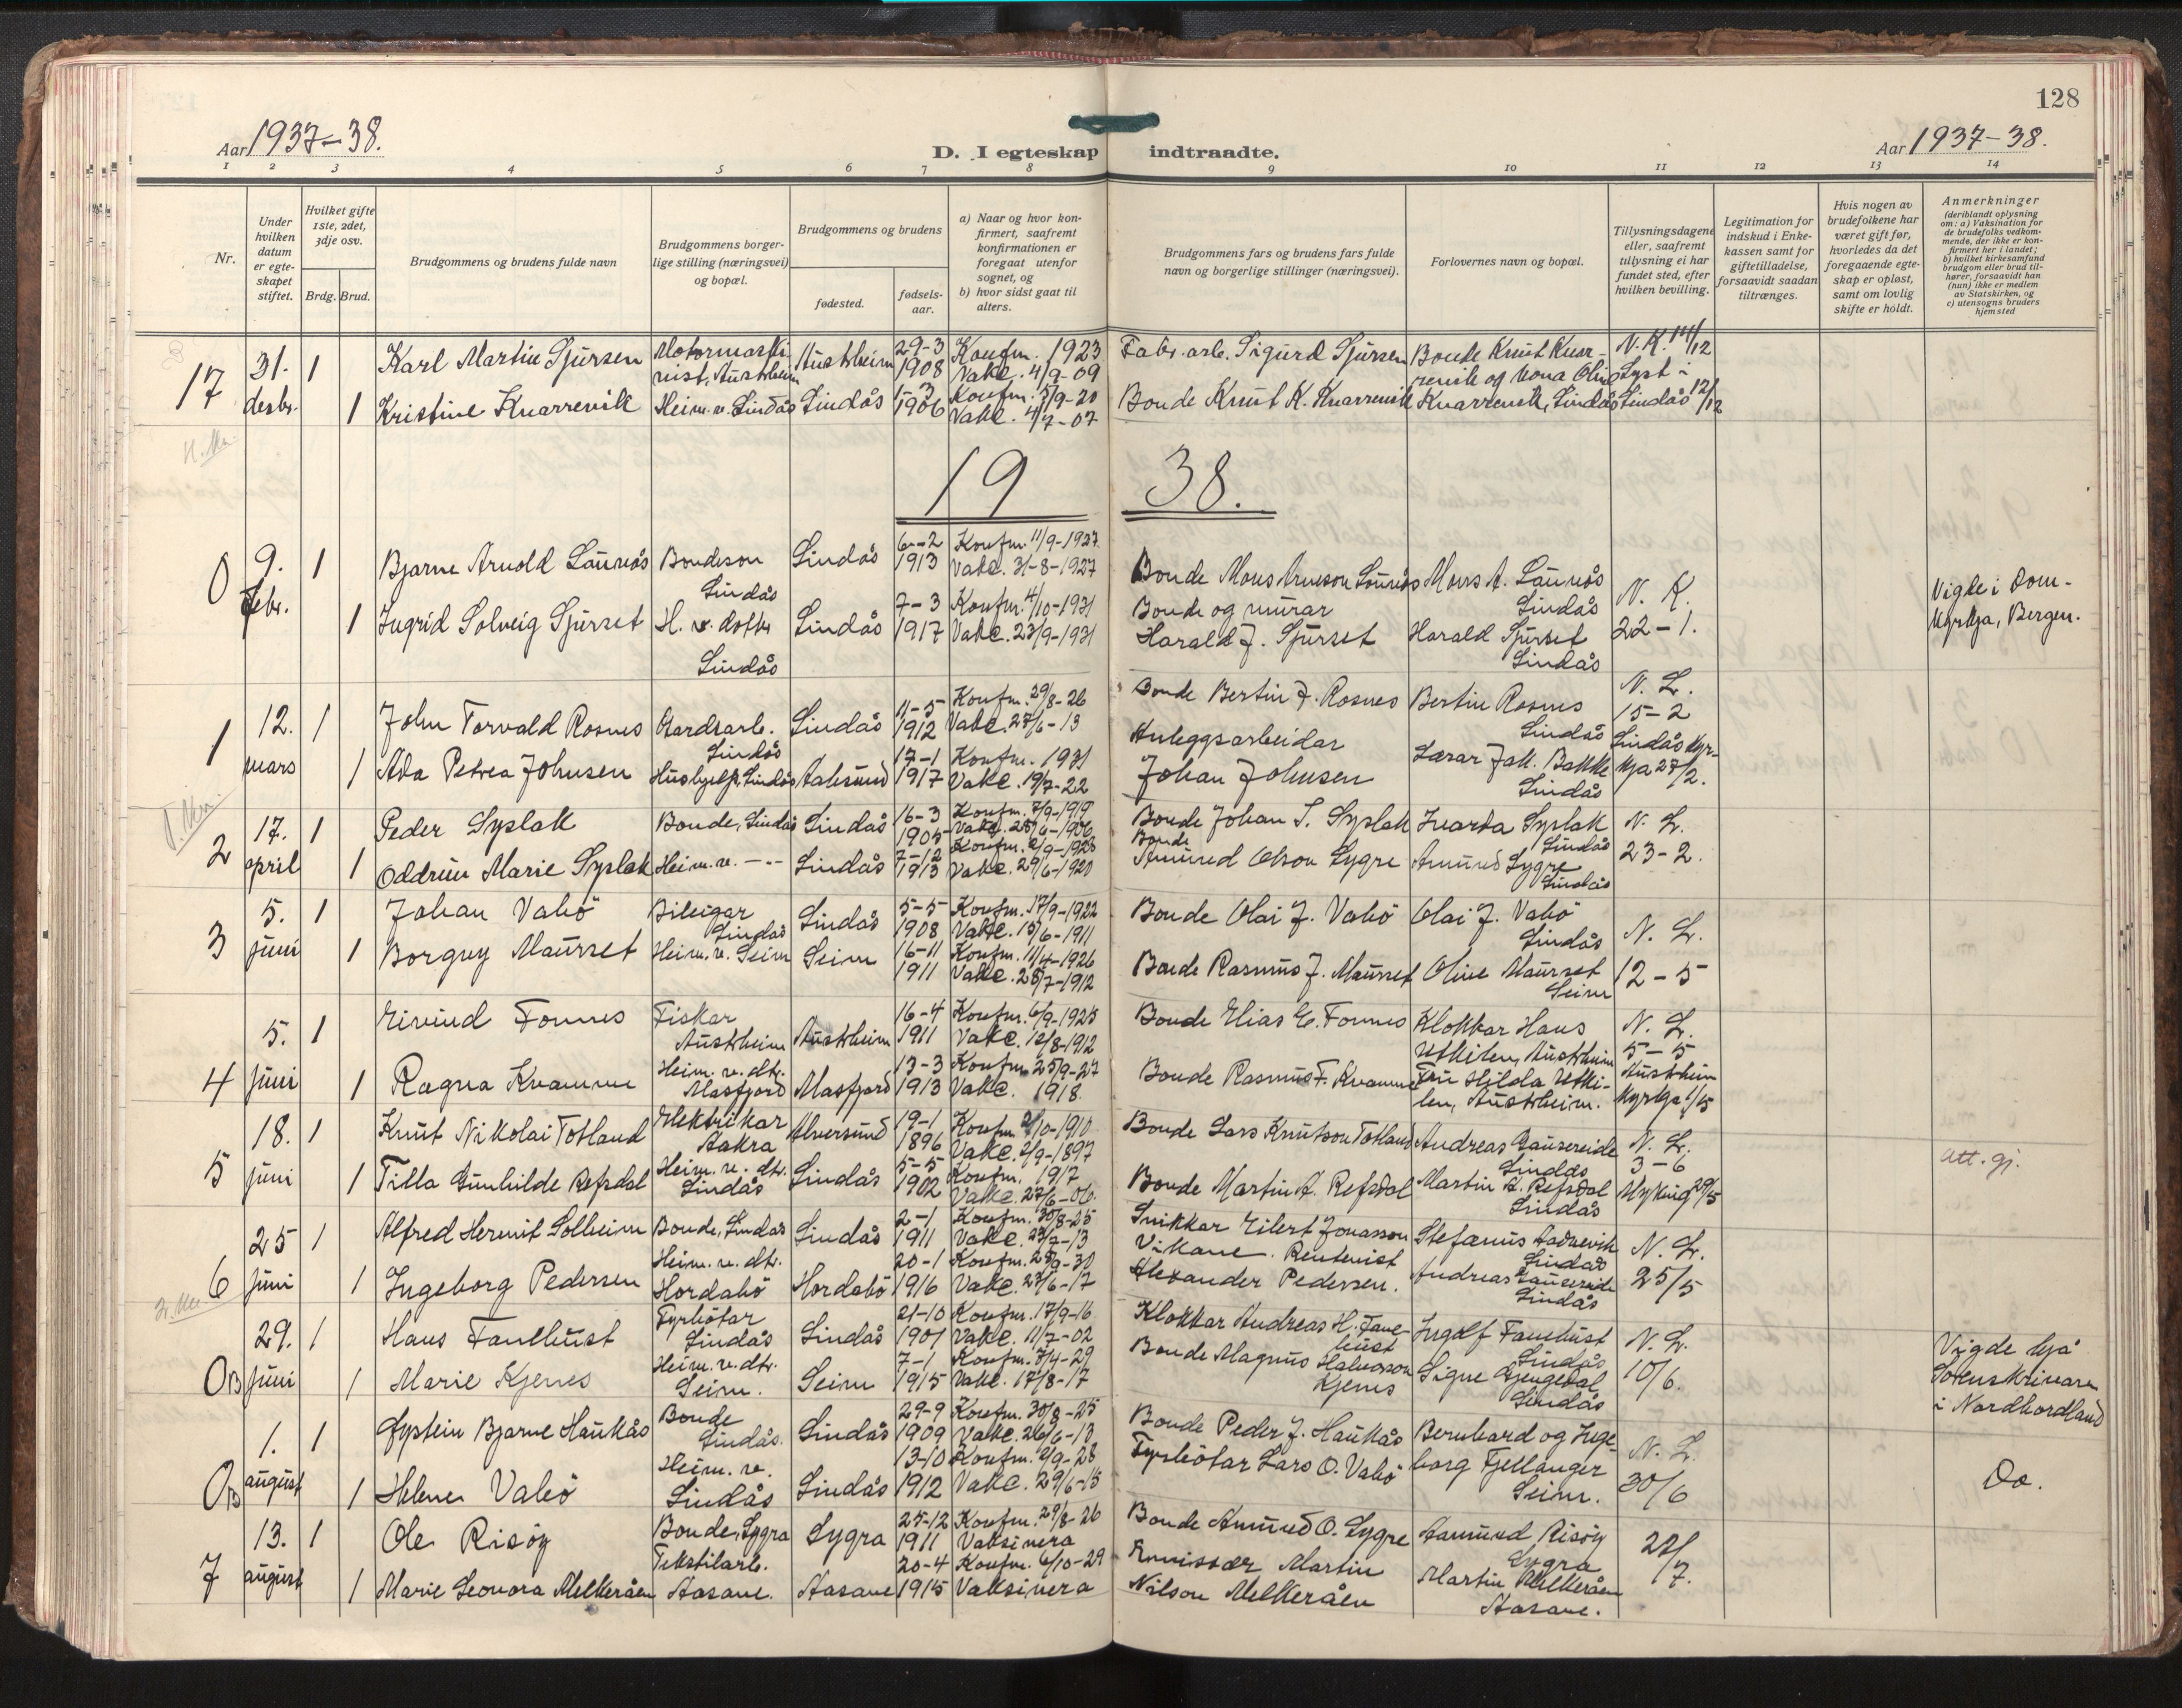 128
Aar 1937-38.
D. I egteskap indtraadte.
Aar 1937-38.
1 2 3 4 5 6 7 8 9 10 11 12 13 14
Nr.
Under hvilken datum er egte-skapet stiftet.
Hvilket gifte 1ste, 2det, 3dje osv.
Brdg. Brud.
Brudgommens og brudens fulde navn
Brudgommens borger-lige stilling (næringsvei) og bopæl.
Brudgommens og brudens
fødested.
fødsels-aar.
a) Naar og hvor kon-firmert, saafremt konfirmationen er foregaat utenfor sognet, og
b) hvor sidst gaat til alters.
Brudgommens fars og brudens fars fulde navn og borgerlige stillinger (næringsvei).
Forlovernes navn og bopæl.
Tillysningsdagene eller, saafremt tillysning ei har fundet sted, efter hvilken bevilling.
Legitimation for indskud i Enke-kassen samt for giftetilladelse, forsaavidt saadan tiltrænges.
Hvis nogen av brudefolkene har været gift før, hvorledes da det foregaaende egte-skap er opløst, samt om lovlig skifte er holdt.
Anmerkninger
(deriblandt oplysning om: a) Vaksination for de brudefolks vedkom-mende, der ikke er kon-firmert her i landet; b) hvilket kirkesamfund brudgom eller brud til-hører, forsaavidt han (hun) ikke er medlem av Statskirken, og c) utensogns bruders hjemsted
17 31. desbr. 1 Karl Martin Sjursen Motormaski-nist, Austrheim Austrheim 29-3 1908 Konfm. 1923 Vakc. 4/9-09 Fabr. arb. Sigurd Sjursen Bonde Knut Knar-revik og Mona Oline N. K. 11/12 Lyst i
1 Kristine Knarrevik Heim. v. Lindås Lindås 1-3 1906 Konfm. 5/9-20 Vakc. 4/7-07 Bonde Knut K. Knarrevik Knarrevik, Lindås Lindås 12/12
1938.
0 9. febr. 1 Bjarne Arnold Launås Bondeson Lindås Lindås 6-2 1913 Konfm. 11/9-1927 Vakc. 31-8-1927 Bonde Mons Arneson Launås Mons A. Launås Lindås N. K. Vigde i Dom-
1 Ingrid Solveig Sjurset H. v. dotter Lindås Lindås 7-3 1917 Konfm. 4/10-1931 Vakc. 23/9-1931 Bonde og murar Harald J. Sjurset Harald Sjurset Lindås 22-1. kyrkja, Bergen.
1 12. mars 1 John Torvald Rosnes Gardsarb. Lindås Lindås 11-5 1912 Konfm. 29/8-26 Vakc. 27/6-13 Bonde Bertin J. Rosnes Bertin Rosnes Lindås N. L. 15-2
1 Ada Petrea Johnsen Hushjelp, Lindås Aalesund 17-1 1917 Konfm. 1931 Vakc. 19/7-22 Anleggsarbeidar Johan Johnsen Lærar Jak. Bakke Lindås Lindås kyr-kja 27/2.
2 17. april 1 Peder Syslak Bonde, Lindås Lindås 16-3 1905 Konfm. 7/9-1919 Vakc. 28/6-1906 Bonde Johan I. Syslak Ivarda Syslak Lindås N. L.
1 Oddrun Marie Syslak Heim. v. -"- Lindås 7-12 1913 Konfm. 2/9-1928 Vakc. 29/6-1920 Bonde Amund Olson Lygre Amund Lygre Lindås 23-2.
3 5. juni 1 Johan Vabö Bileigar Lindås Lindås 5-5 1908 Konfm. 17/9-1922 Vakc. 15/6-1911 Bonde Olai J. Vabö Olai J. Vabö Lindås N. L.
1 Borgny Maurset Heim. v. Seim Seim 16-11 1911 Konfm. 11/4-1926 Vakc. 28/7-1912 Bonde Rasmus J. Maurset Oline Maurset Seim 12-5
4 5. juni 1 Eivind Fonnes Fiskar Austrheim Austrheim 16-4 1911 Konfm. 6/9-1925 Vakc. 12/8-1912 Bonde Elias E. Fonnes Klokkar Hans Utkilen, Austrheim N. L. 5-5
1 Ragna Kvamme Heim. v. dtr. Masfjord Masfjord 13-3 1913 Konfm. 25/9-27 Vakc. 1918. Bonde Rasmus F. Kvamme Fru Hilda Utki-len, Austrheim. Austrheim kyrkje 1/5
5 18. juni 1 Knut Nikolai Totland Elektrikar Aakra Alversund 19-1 1896 Konfm. 2/10-1910 Vakc. 2/9-1897 Bonde Lars Knutson Totland Andreas Gausereide Lindås N. L. 3-6 Att. gj.
1 Tilla Gunhilde Refsdal Heim. v. dtr. Lindås Lindås 5-5 1902 Konfm. 1917 Vakc. 27/6-06 Bonde Martin A. Refsdal Martin A. Refsdal Lindås Myking 29/5
6 25 juni 1 Alfred Hermit Solheim Bonde, Lindås Lindås 2-1 1911 Konfm. 30/8-25 Vakc. 23/7-13 Snikkar Eilert Jonasson Vikane. Stefanus Aadnevik Lindås N. L.
1 Ingeborg Pedersen Heim. v. dtr. Hordabö Hordabö 20-1 1916 Konfm. 28/9-30 Vakc. 23/6-17 Rentenist Alexander Pedersen. Andreas Gausereide Lindås 25/5
OB 29. juni 1 Hans Fanebust Fyrbötar Lindås Lindås 21-10 1901 Konfm. 17/9-16 Vakc. 11/7-02 Klokkar Andreas H. Fane-bust Ingolf Fanebust Lindås N. L. Vigde hjå
1 Marie Kjenes Heim. v. dtr. Seim. Seim 7-1 1915 Konfm. 7/4-29 Vakc. 17/8-17 Bonde Magnus Halvorson Kjenes Signe Gjengedal Lindås 10/6. Sorenskrivaren i Nordhordland
OB 1. august 1 Øystein Bjarne Haukås Bonde Lindås. Lindås 29-9 1909 Konfm. 30/8-25 Vakc. 26/6-13 Bonde Peder J. Haukås Bernhard og Inge-borg Fjellanger Seim. N. L.
1 Helene Vabö Heim. v. Lindås Lindås 13-10 1912 Konfm. 2/9-28 Vakc. 29/6-15 Fyrbötar Lars O. Vabö 30/6 Do.
7 13. august 1 Ole Risöy Bonde, Lygra Lygra 25-12 1911 Konfm. 29/8-26 Vaksinera Bonde Amund O. Lygre Aamund Risöy Lygra 22/7.
1 Marie Leonora Melkeråen Tekstilarb. Aasane. Aasane 20-4 1915 Konfm. 6/10-29 Vaksinera Emissær Martin Nilson Melkeråen Martin Melkeråen Aasane.